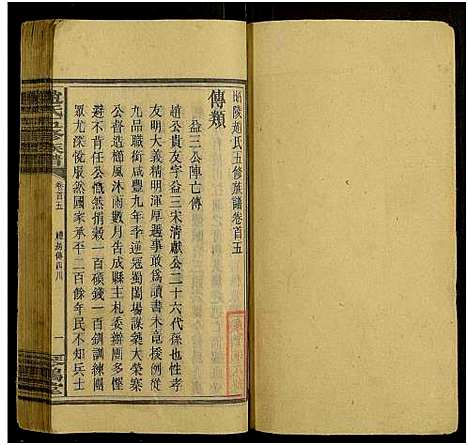 始陵趙氏五修族譜卷首五
傳類
益三公陣亡傳
趙公貴友字益三宋清獻公二十六代孫也性孝
友明大義精神渾厚遇事敢為讀書未竟援例從
九品職銜咸豐九年季逆冠蜀闖場謀藥大榮寨
公督造櫛風沐雨數月告成縣主札委辦團多慳
避不肯任公慨然捐穀一百碩錢一百釧訓練團
眾尤深悅服然國家承平二百餘年民不知兵士
趙氏五修族譜
卷首五
一